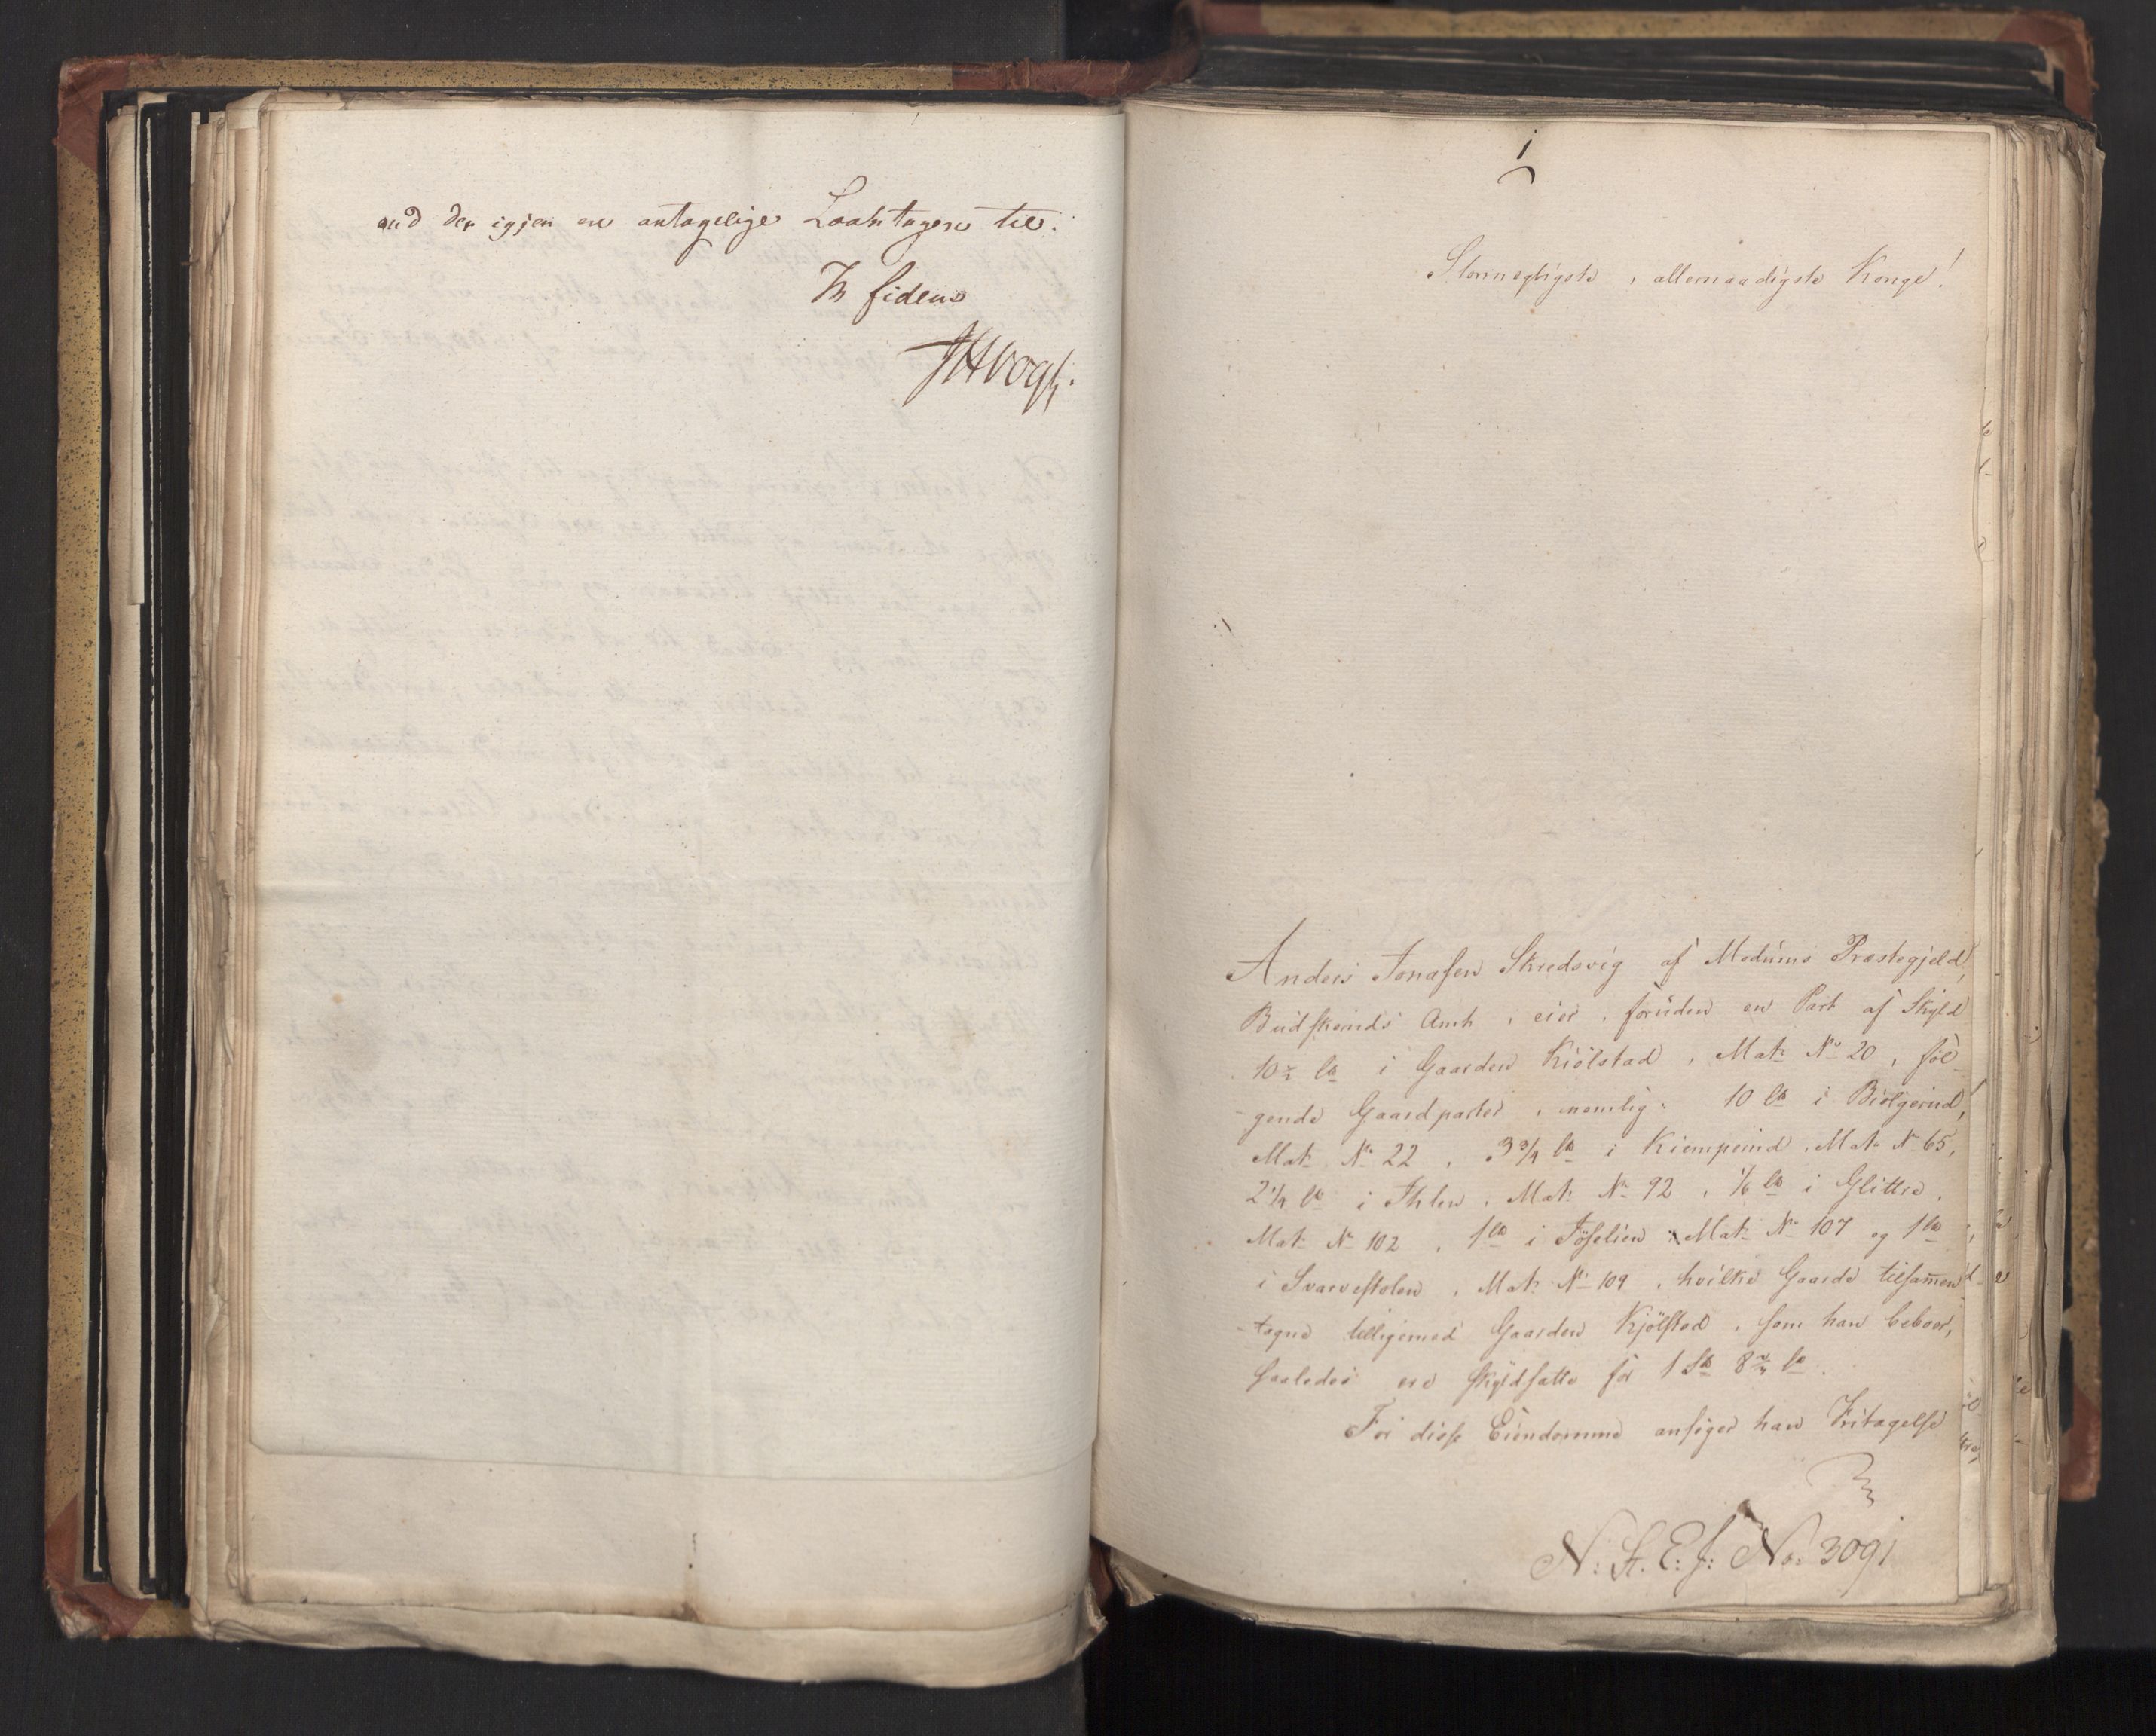 end der igjen ere antagelige Laantagere til.
In fidem
JHVogt.
1
Stormægtigste, allernaadigste Konge!
Anders Jonasen Skredsvig af Modums Præstegjeld,
Budskeruds Amt, eier, foruden en Part af Skyld
10½ lb i Gaarden Kiölstad, Mat: No 20, föl-
gende Gaardparter, nemlig: 10 lb i Biölgerud,
Mat: No 22, 3¾ lb i Kiemperud, Mat: No 65,
2¼ lb i Ihlen, Mat: No 92, 1/6 lb i Glittre,
Mat: No 102, 1 lb i Föselien, Mat: No 107 og 1 lb
i Svarvestolen, Mat: No 109, hvilke Gaarde tilsammen-
tagne tilligemed Gaarden Kjölstad, som han beboer,
saaledes ere skyldsatte for 1 Sk 8 lb.
For disse Eiendomme ansöger han Fritagelse
N: St. E: J: No: 3091